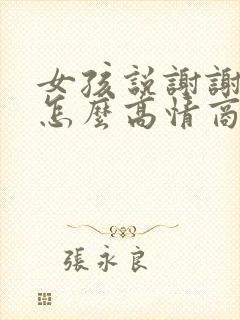 女孩説謝謝
怎麼高情商
張永良